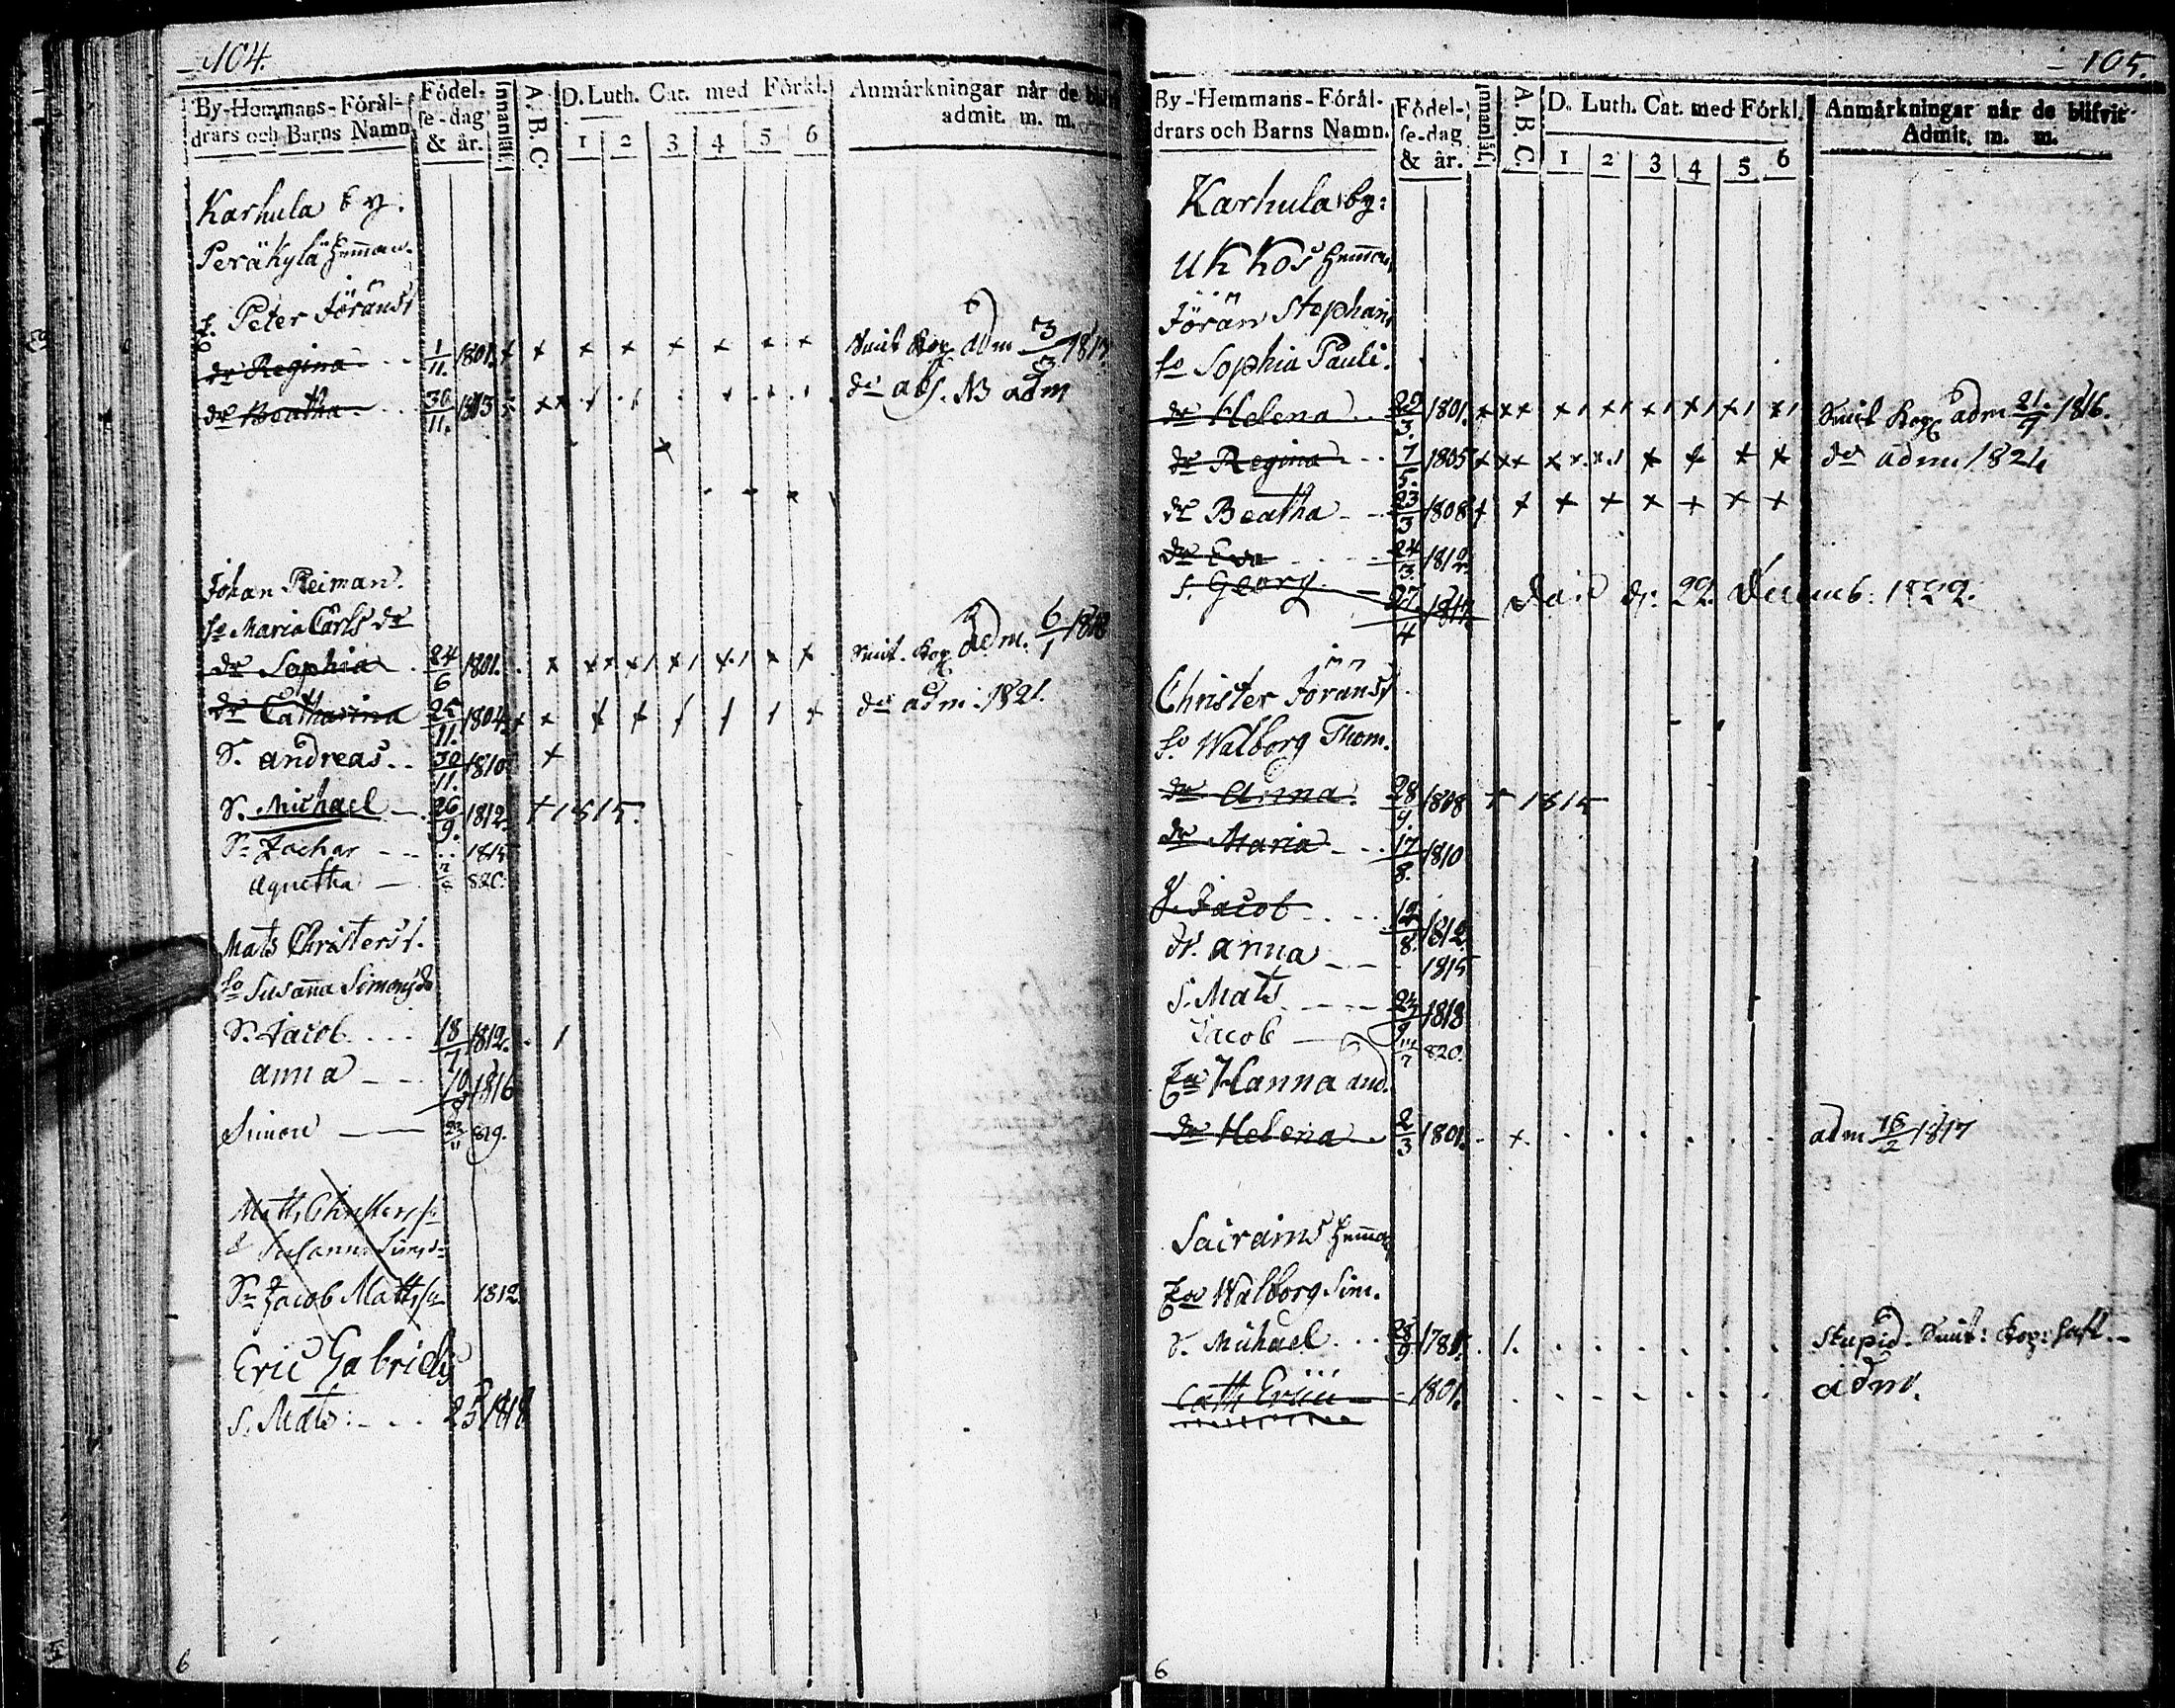 104.
By-Hemmans-Förål-
drars och Barns Namn.
Födel-
se-dag
& år.
Innanläs.
A. B. C.
D. Luth. Cat. med Förkl.
1 2 3 4 5 6
Anmärkningar når de
admit. m. m.
Karhula by.
Peräkylä Hemman.
Peter Jöranss
dr Regina 1/11 1801. + + + + + + + + Smit Kop adm 3/3 1817
dr Beatha 30/11 1803 do abs. NB adm
Johan Reiman.
Maria Carls dr
dr Sophia 24/6 1801. Smit. Kop adm. 6/1 1818
dr Catharina 25/11 1804 do adm. 1821.
S. Andreas 30/11 1810 +
S. Michael 26/9 1812. + 1815.
S. Zachar 1815
Agnetha 820.
Mats Christers s.
Susanna Simons dr
S. Jacob 18/7 1812. 1
Anna 10 1816
Simon 23/11 819.
Matts Christerss
Susanna Sims dr
S. Jacob Mattss 1812
Eric Gabriels
S. Mats 25 1818
6
105.
By-Hemmans-Förål-
drars och Barns Namn.
Födel-
se-dag
& år.
Innanläs.
A. B. C
D. Luth. Cat. med Förkl.
1 2 3 4 5 6
Anmärkningar når de blifvit
Admit. m. m.
Karhula by:
Ukkos Hemman
Jöran Stephans
Sophia Pauli.
dr Helena 22/3 1801. Smit Kop adm 21/7 1816.
dr Regina 7/5 1805 do adm 1824
dr Beatha 23/3 1808 + + + + + + + +
dr Eva 24/3 1812
S. Georg 27/4 död d. 22 Decemb: 1822.
Christer Jöranss
Walborg Thom.
dr Anna 28/9 1808 + 1815
dr Maria 17/8 1810
S. Jacob 12/8 1812
dr. Anna 1815
S. Mats 24/9 1818
Jacob 820.
Hanna And.
dr Helena 2/3 1801. + adm 16/2 1817
Sairains Hemman
Walborg Sim.
S. Michael 28/9 Stupid. Smit: Kop: haft
Cath Ersdr 1801. adm.
6